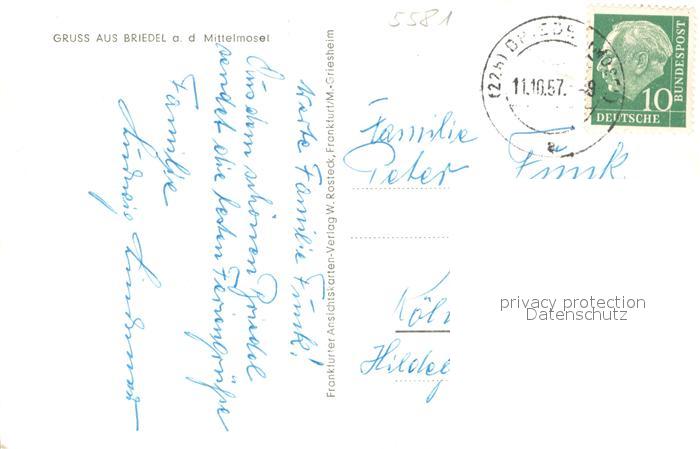 5581
GRUSS AUS BRIEDEL a. d Mittelmosel
Werte Familie Funk!
Aus dem schönen Briedel
sendet die besten Feriengrüße
Familie
Ludwig
Frankfurter Ansichtskarten-Verlag W. Rosteck, Frankfurt/M.-Griesheim
(22b) BRIEDEL (MOSEL)
11.10.57.-8
a
10
DEUTSCHE
BUNDESPOST
Familie
Peter Funk.
Köln
Hildeg
privacy protection
Datenschutz